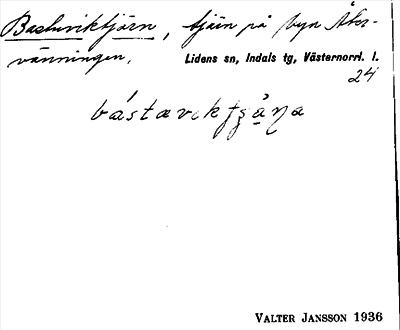 Bastuviktjärn, tjärn på byn Åker-
vänningen,
Lidens sn, Indals tg, Västernorrl. l.
24
bástavikfjäna
VALTER JANSSON 1936